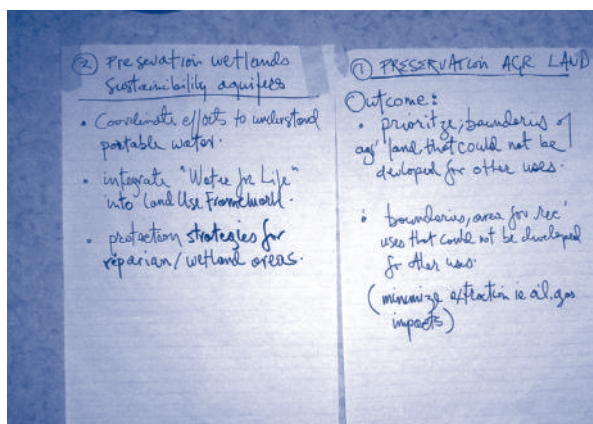 ② Preservation wetlands
Sustainibility aquifers
• Coordinate efforts to understand
portable water.
• integrate "Water for Life"
into Land Use Framework.
• protection strategies for
reparian/wetland areas.
① PRESERVATION AGR LAND
Outcome:
• prioritze, bounderies of
ag' land that could not be
developed for other uses.
• bounderies, area for rec'
uses that could not be developed
for other uses.
(minimize extraction ie oil, gas
impacts)